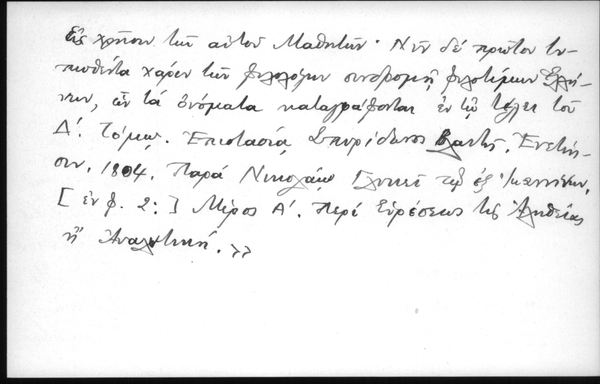 εἰς χρῆσιν τῶν αὑτοῦ Μαθητῶν· Νῦν δὲ πρῶτον τυ-
πωθέντα χάριν τῶν φιλολόγων συνδρομῇ φιλοτίμων Ἑλλή-
νων, ὧν τὰ ὀνόματα καταγράφονται ἐν τῷ τέλει τοῦ
Δ'. Τόμου. Ἐπιστασίᾳ Σπυρίδωνος Βλαντῆ. Ἐνετίῃ-
σιν. 1804. Παρὰ Νικολάῳ Γλυκεῖ τῷ ἐξ Ἰωαννίνων.
[ ἐν φ. 2: ] Μέρος Α'. Περὶ Εὑρέσεως τῆς Ἀληθείας
ἢ Ἀναλυτική. >>